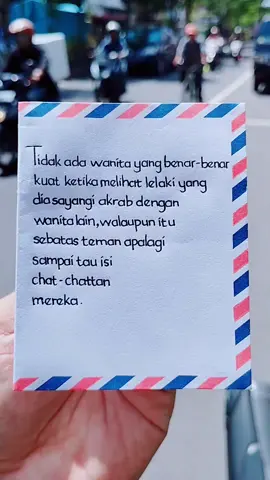 Tidak ada wanita yang benar-benar
kuat ketika melihat lelaki yang
dia sayangi akrab dengan
wanita lain, walaupun itu
sebatas teman apalagi
sampai tau isi
chat-chattan
mereka.